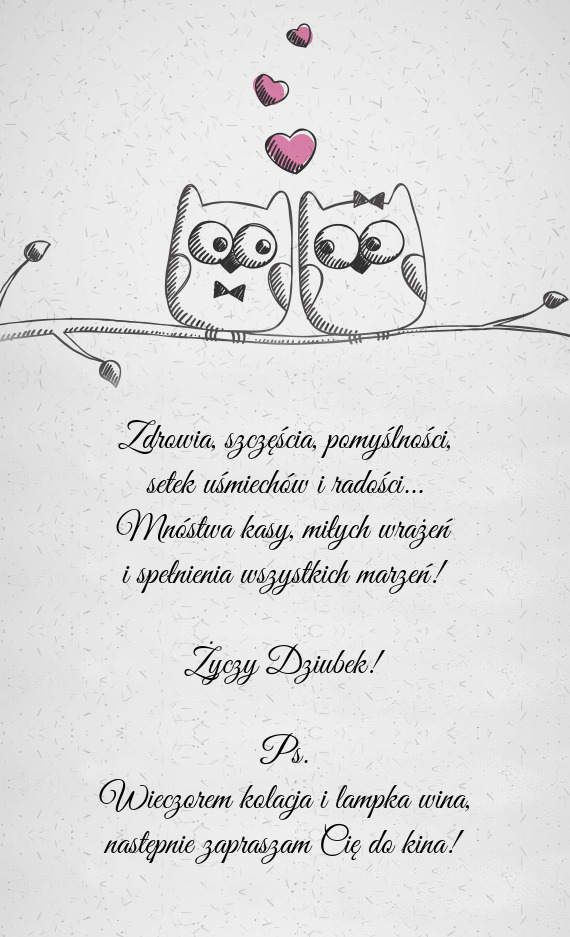 Zdrowia, szczęścia, pomyślności,
setek uśmiechów i radości...
Mnóstwa kasy, miłych wrażeń
i spełnienia wszystkich marzeń!
Życzy Dziubek!
Ps.
Wieczorem kolacja i lampka wina,
następnie zapraszam Cię do kina!